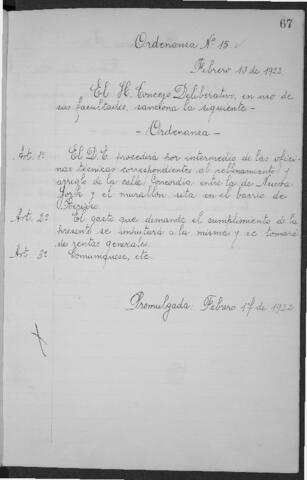 67
Ordenanza Nº 15
Febrero 13 de 1922
El H. Concejo Deliberativo, en uso de
sus facultades, sanciona la siguiente -
- Ordenanza -
Art. 1º El D. E. procederá por intermedio de las ofici-
nas técnicas correspondientes al rellenamiento y
arreglo de la calle Concordia entre la de Nueva
York y el murallón, sita en el barrio de
Art. 2º El gasto que demande el cumplimiento de la
presente se imputará a la misma y se tomará
de rentas generales.
Art. 3º Comuníquese, etc.
Promulgada: Febrero 17 de 1922